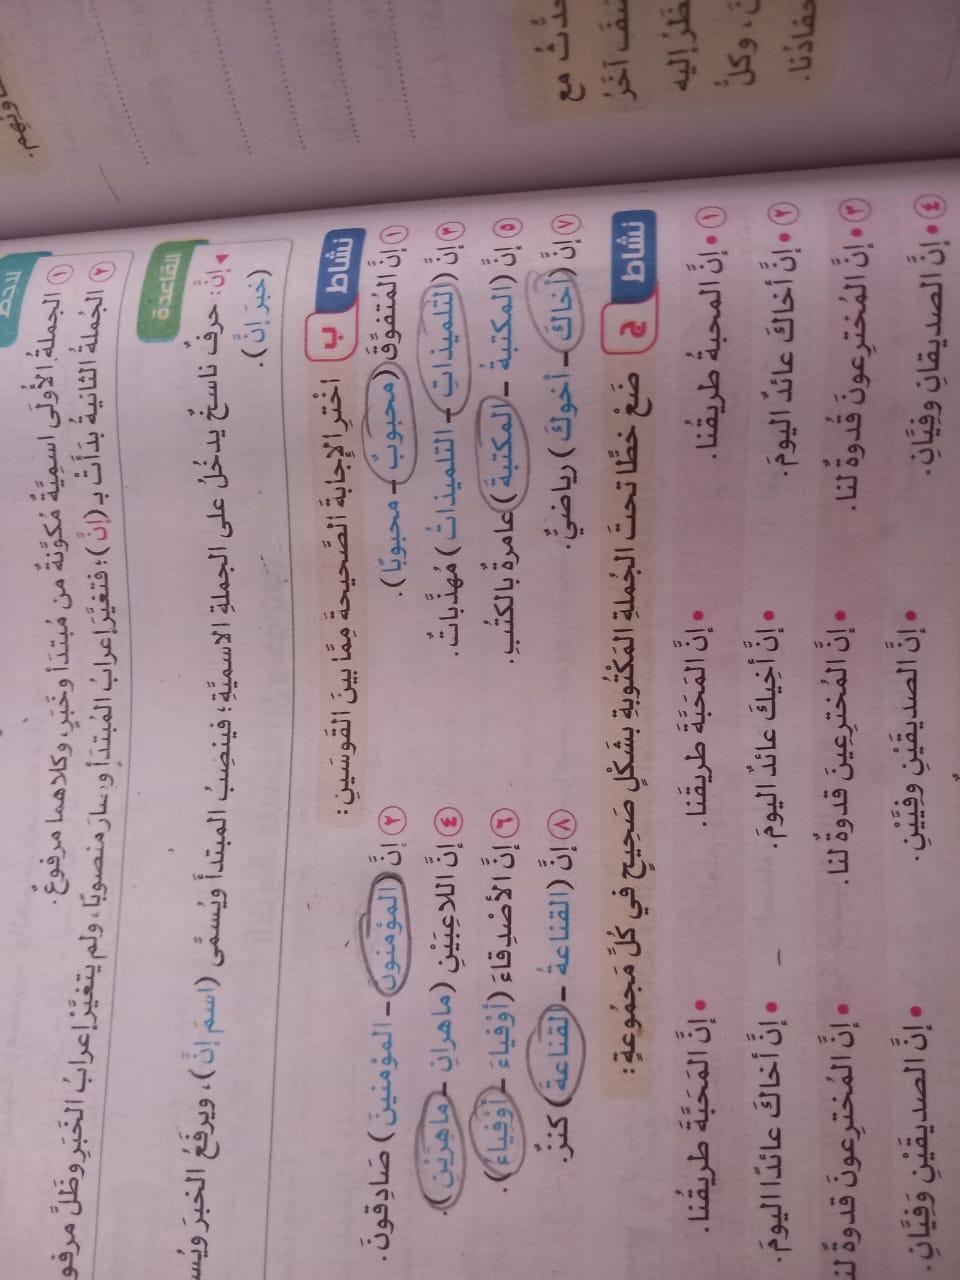 حدَّثُ مع
صَفَ آخَرُ
ظَرُ إليه
وكلُّ
حفادُنا.
ونِهِم.
لاحظ
١ الجملةُ الأُولَى اسميَّةٌ مُكوَّنةٌ مِن مُبتدَأ وخَبَرٍ، وكلاهما مرفوعٌ.
٢ الجُملةُ الثانيةُ بدَأَتْ بـ (إنَّ)؛ فتغيَّرَ إعرابُ المُبتدَأِ وصار منصوبًا، ولم يتغيَّرْ إعرابُ الخَبَرِ وظَلَّ مرفو
القاعدة
◂ إنَّ: حرفٌ ناسخٌ يدخُلُ على الجملةِ الاسميَّةِ؛ فينصِبُ المبتدأَ ويُسمَّى (اسمَ إنَّ)، ويرفَعُ الخبرَ ويُسـ
(خبرَ إنَّ).
نشاط ب اخترِ الإجابةَ الصَّحيحةَ مِمَّا بينَ القَوسَينِ:
١ إنَّ المُتفوِّقَ (محبوبٌ – محبوبًا). ٢ إنَّ (المؤمنونَ – المؤمنينَ) صَادِقونَ.
٣ إنَّ (التلميذاتِ – التلميذاتُ) مُهذَّباتٌ. ٤ إنَّ اللاعِبَيْنِ (ماهرانِ – ماهِرَيْنِ).
٥ إنَّ (المكتبةُ – المكتبةَ) عامرةٌ بالكتُبِ. ٦ إنَّ الأصْدِقاءَ (أوْفياءَ – أوْفياءُ).
٧ إنَّ (أخاكَ – أخوكَ) رياضيٌّ. ٨ إنَّ (القناعةُ – القناعةَ) كنزٌ.
نشاط ج ضَعْ خطًّا تحتَ الجُملةِ المَكْتُوبةِ بشَكْلٍ صَحِيحٍ في كُلِّ مَجمُوعةٍ:
١ • إنَّ المحبةُ طريقُنا. • إنَّ المَحَبَّةَ طريقَنا. • إنَّ المَحَبَّةَ طريقُنا.
٢ • إنَّ أخاكَ عائدٌ اليومَ. • إنَّ أخِيكَ عائدٌ اليومَ. • إنَّ أخاكَ عائدًا اليومَ.
٣ • إنَّ المُخترعونَ قدوةٌ لنا. • إنَّ المُخترِعينَ قدوةٌ لنا. • إنَّ المُخترِعونَ قدوةً لنا
٤ • إنَّ الصديقانِ وفِيَّانِ. • إنَّ الصديقَيْنِ وفِيَّيْنِ. • إنَّ الصديقَيْنِ وَفِيَّانِ.